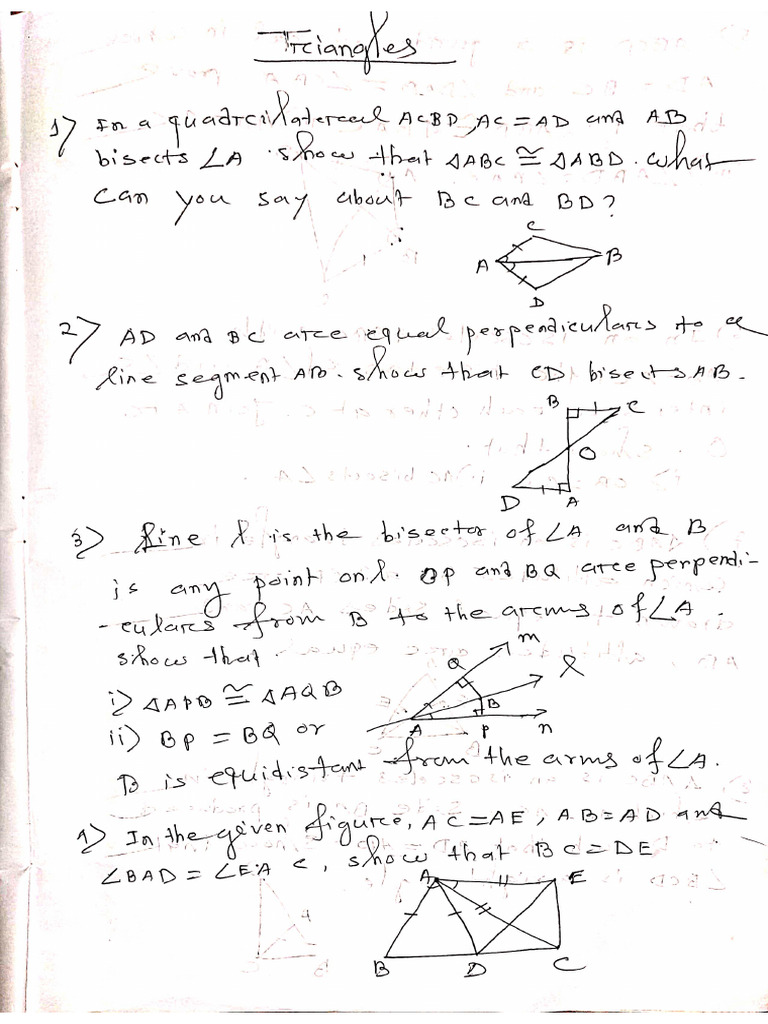 Triangles
1) In a quadrilateral ACBD, AC = AD and AB
bisects ∠A. show that △ABC ≅ △ABD. what
can you say about BC and BD?
C
A
B
D
2) AD and BC are equal perpendiculars to a
line segment AB. show that CD bisects AB.
B
C
O
D
A
3) Line l is the bisector of ∠A and B
is any point on l. BP and BQ are perpendi-
-culars from B to the arms of ∠A.
show that.
m
Q
l
i) △APB ≅ △AQB
B
ii) BP = BQ or
A
P
n
B is equidistant from the arms of ∠A.
4) In the given figure, AC = AE, AB = AD and
∠BAD = ∠EAC, show that BC = DE
A
E
B
D
C